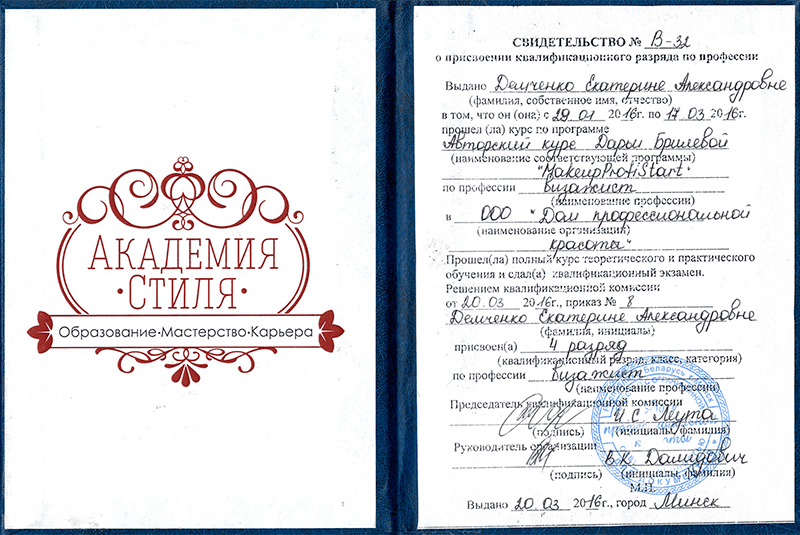 АКАДЕМИЯ
·СТИЛЯ·
Образование·Мастерство·Карьера
СВИДЕТЕЛЬСТВО № В-32
о присвоении квалификационного разряда по профессии
Выдано Демченко Екатерине Александровне
(фамилия, собственное имя, отчество)
в том, что он (она) с 29.01 2016г. по 17.03.2016г.
прошел (ла) курс по программе
Авторский курс Дарьи Брилевой
(наименование соответствующей программы)
"MakeupProfiStart"
по профессии визажист
(наименование профессии)
в ООО "Дом профессиональной
(наименование организация)
красоты"
Прошел(ла) полный курс теоретического и практического
обучения и сдал(а) квалификационный экзамен.
Решением квалификационной комиссии
от 20.03 2016г., приказ № 8
Демченко Екатерине Александровне
(фамилия, инициалы)
присвоен(а) 4 разряд
(квалификационный разряд, класс, категория)
по профессии визажист
(наименование профессии)
Председатель квалификационной комиссии
И.С. Леута
(подпись) (инициалы, фамилия)
Руководитель организации
В.К. Дамидович
(подпись) (инициалы, фамилия)
М.П.
Выдано 20.03 2016г., город Минск